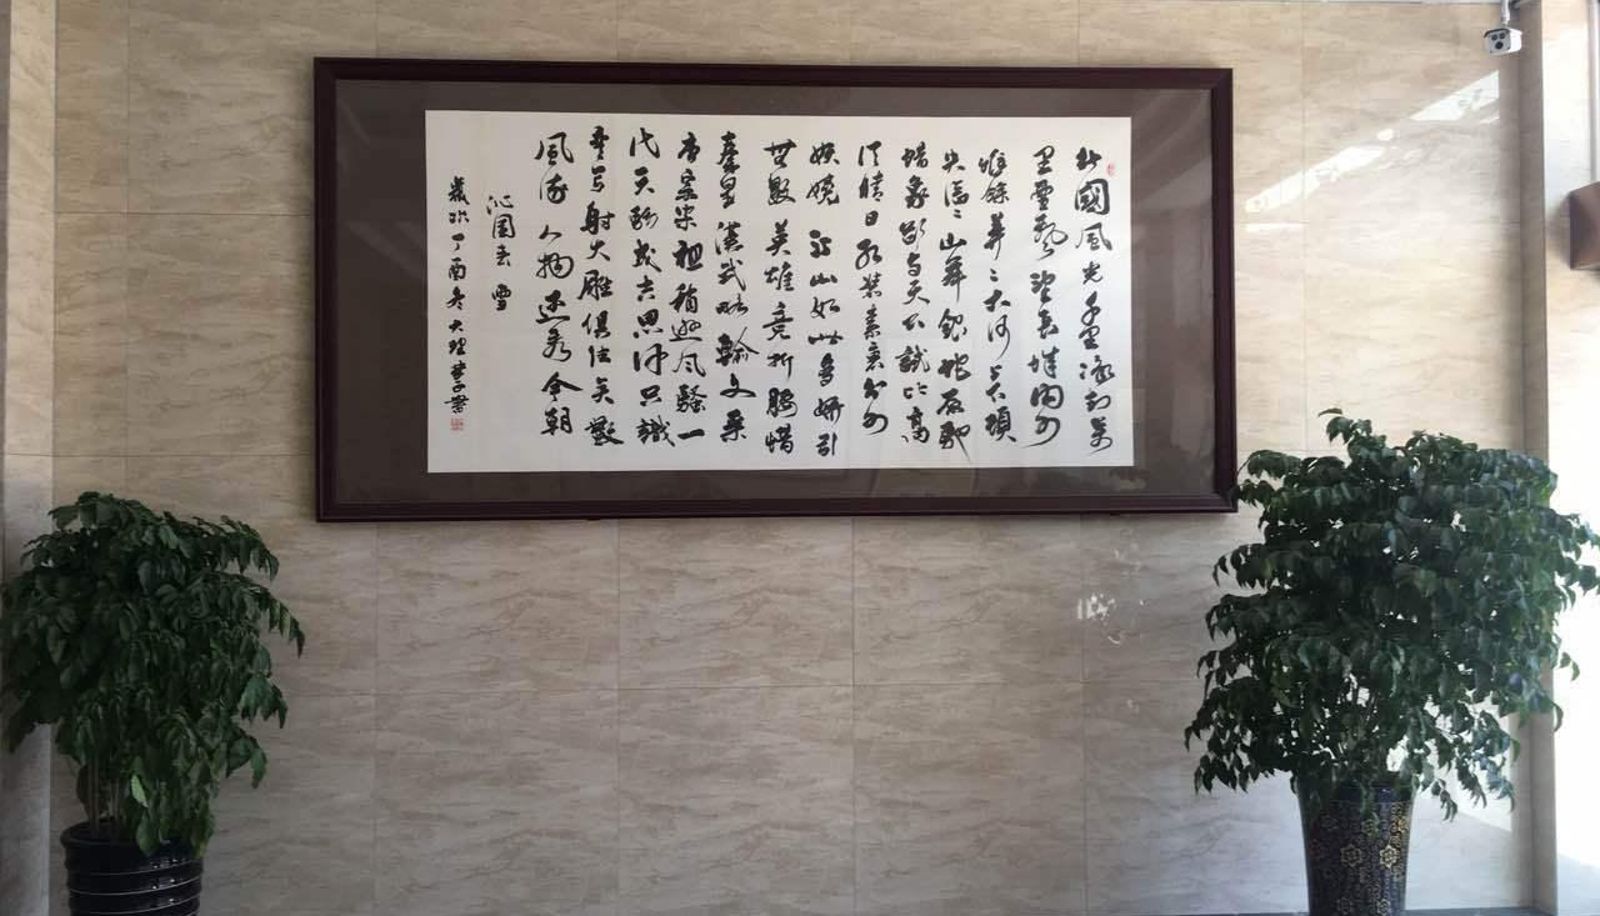 北國風光千里冰封萬
里雪飄望長城內外
惟餘莽々大河上下頓
失滔々山舞銀蛇原馳
蜡象欲與天公試比高
須晴日看紅裝素裹分外
妖嬈江山如此多嬌引
無數英雄競折腰惜
秦皇漢武略輸文采
唐宗宋祖稍遜風騷一
代天驕成吉思汗只識
彎弓射大雕俱往矣數
風流人物還看今朝
沁園春 雪
歲次丁酉冬大理